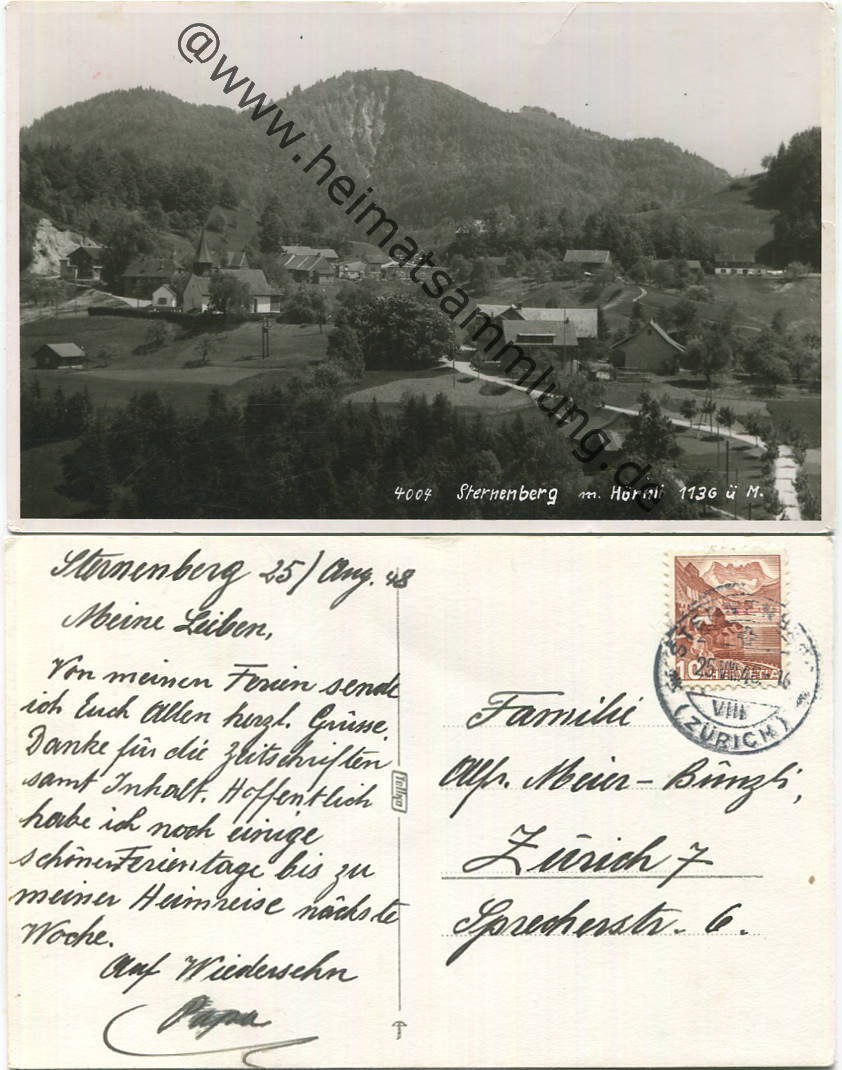 @www.heimatsammlung.de
4004 Sternenberg m. Hörnli 1136 ü M.
Sternenberg 25/Aug. 48
Meine Leiben,
Von meinen Ferien sende
ich Euch Allen herzl. Grüsse.
Danke für die Zeitschriften
samt Inhalt. Hoffentlich
habe ich noch einige
schönen Ferientage bis zu
meiner Heimreise nächste
Woche.
Auf Wiedersehn
Papa
10
25.VIII.48
VIII
(ZÜRICH)
Familie
Alfr. Meier-Bünzli,
Zürich 7
Sprecherstr. 6.